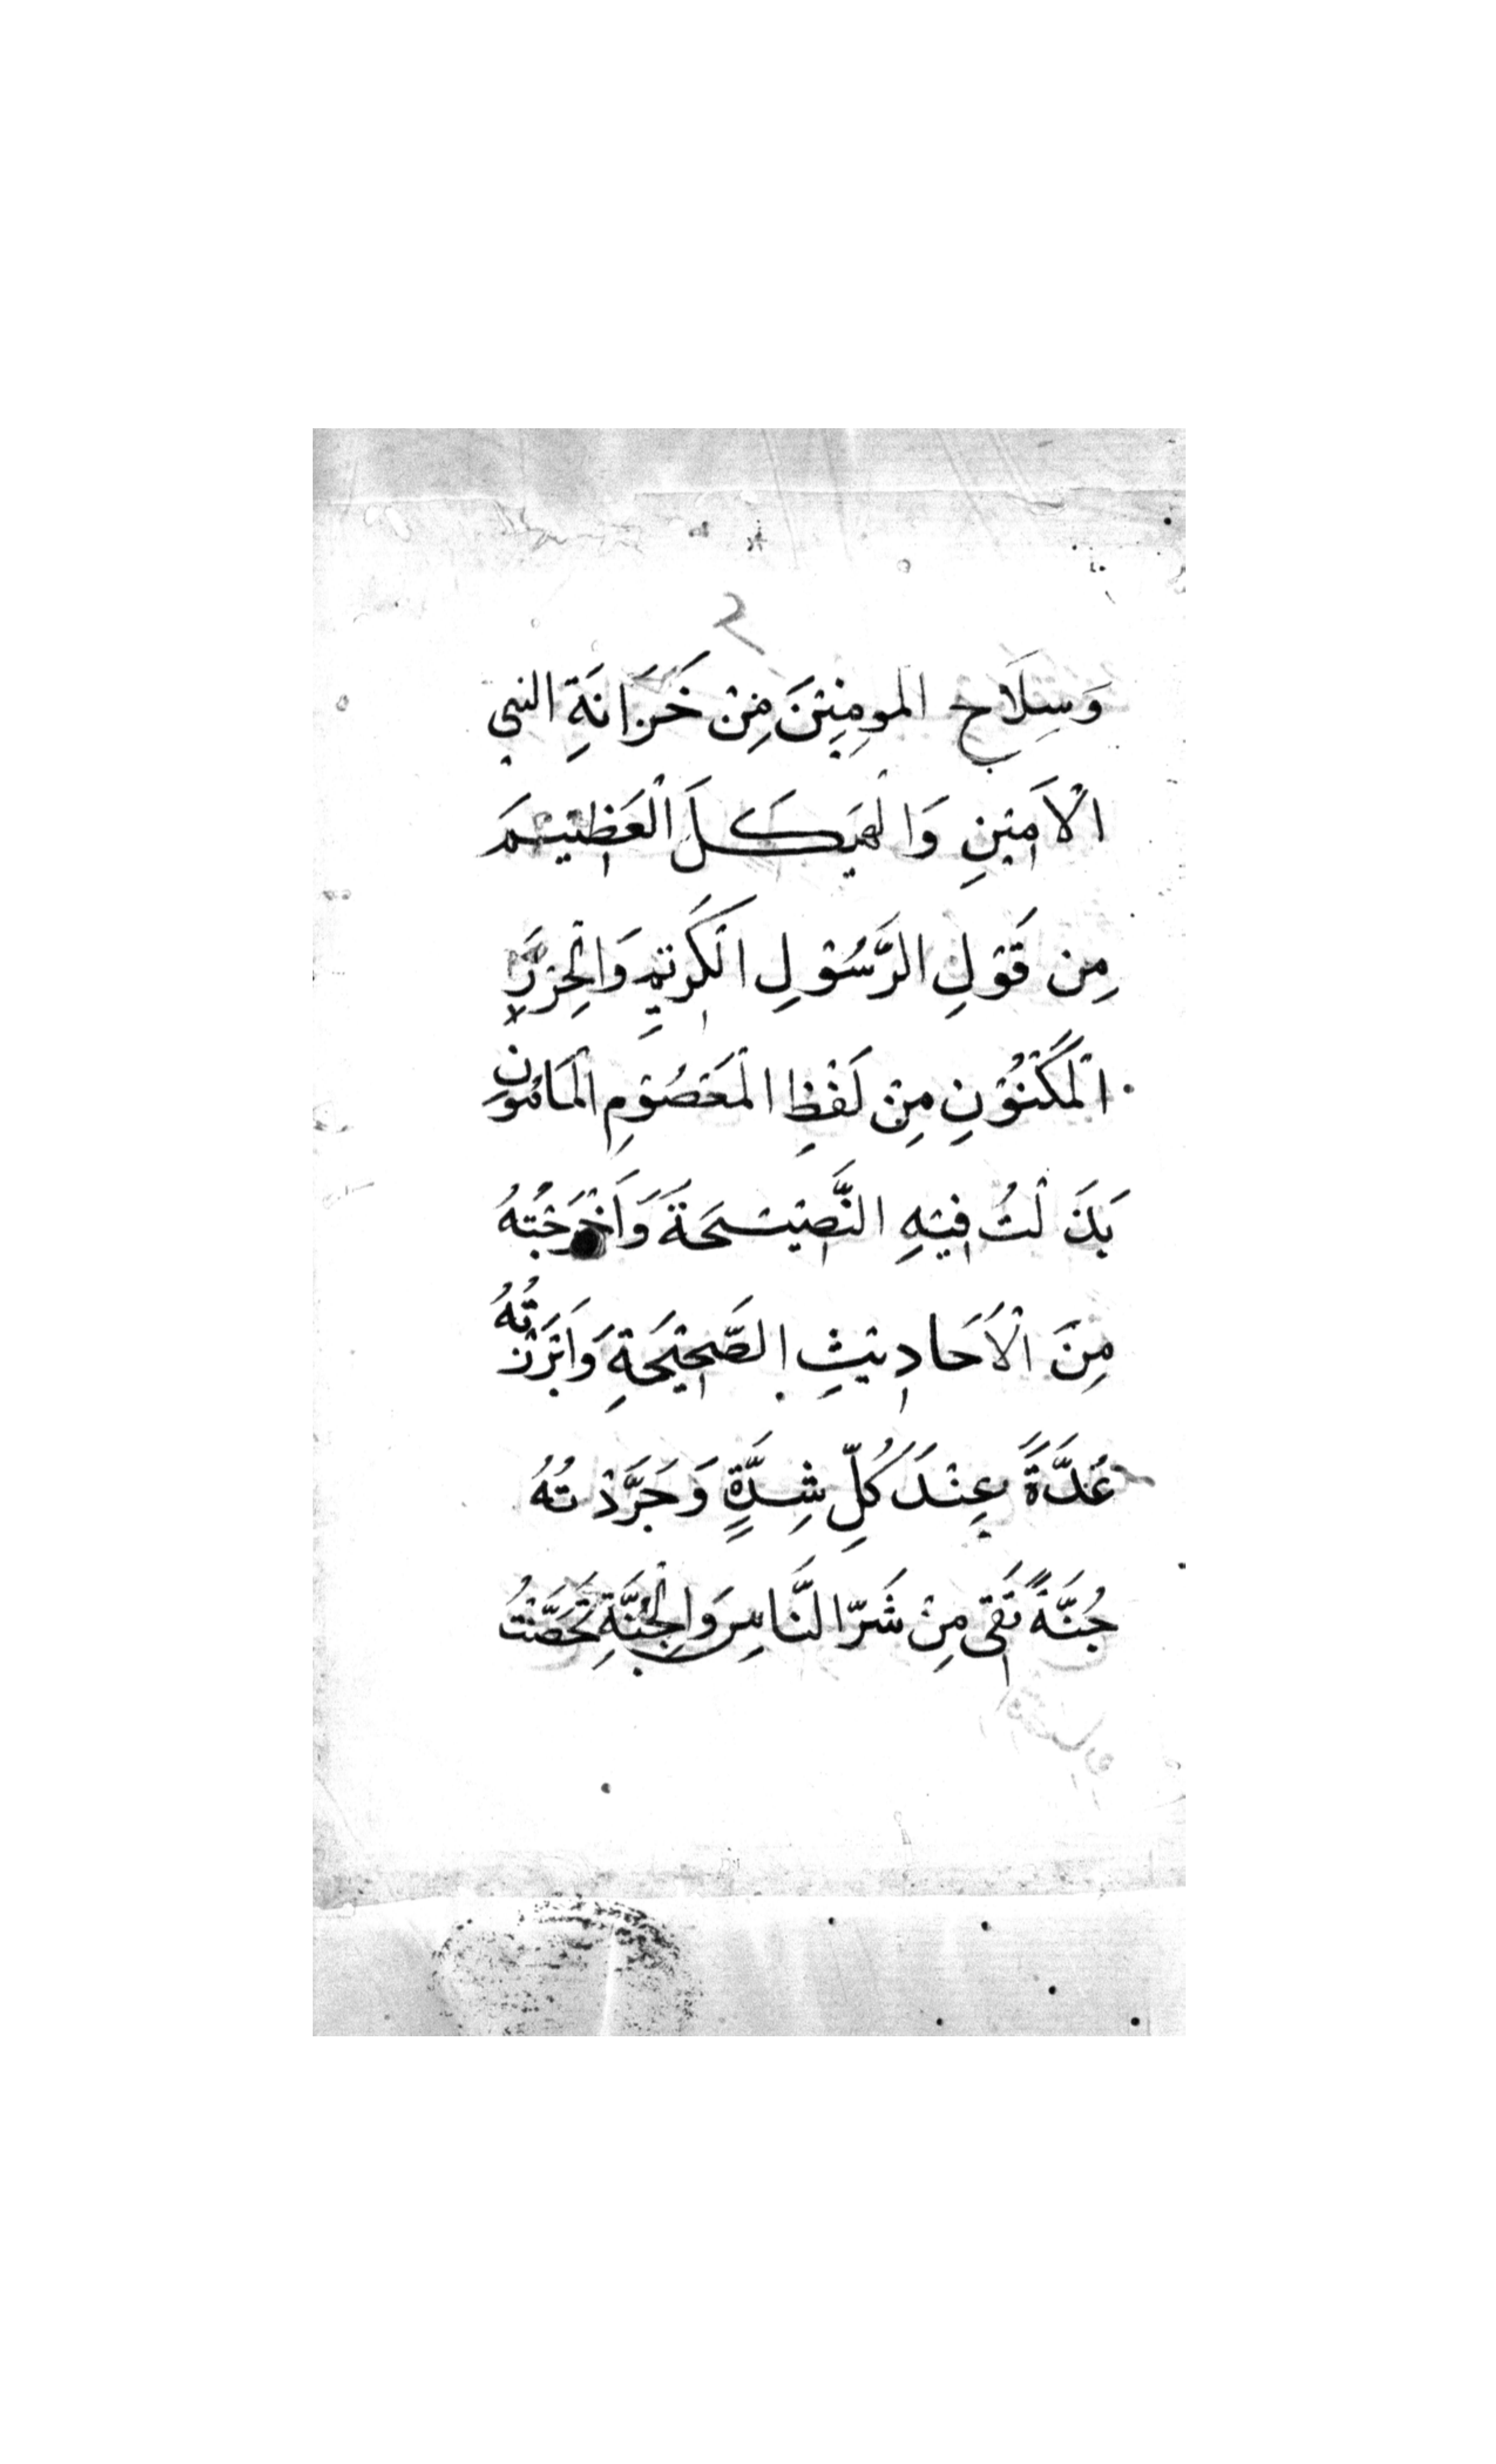 ٢
وَسِلَاح المومِنِيْنَ مِنْ خَزَانَةِ النبي
الْاَمِيْنِ وَالْهَيكَلَ الْعَظِيْمَ
مِن قَوْلِ الرَّسُوْلِ الْكَرِيْمِ وَالْحِرْزَ
الْمَكْنُوْنِ مِنْ لَفْظِ الْمَعْصُوْمِ الْمَامُوْنِ
بَذَلْتُ فِيْهِ النَّصِيْحَةَ وَاَخْرَجْتُهُ
مِنَ الْاَحَادِيْثِ الصَّحِيْحَةِ وَاَبْرَزْتُهُ
عُدَّةً عِنْدَ كُلِّ شِدَّةٍ وَجَرَّدْتُهُ
جُنَّةً تَقِى مِنْ شَرِّ النَّاسِ وَالْجِنَّةِ تَحَصَّنْتُ